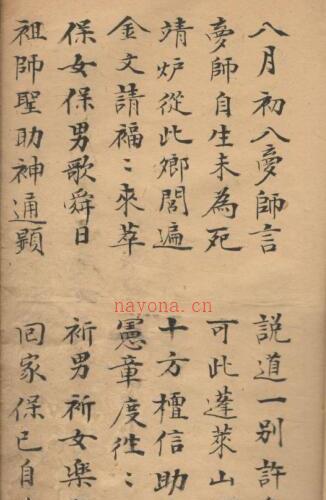 八月初八夢師言　説道一別許
夢師自生未為死　可此蓬萊山
靖炉從此鄉閭遍　十方檀信助
金文請福〻來萃　憲章度徃〻
保女保男歌舜日　祈男祈女樂
祖師聖助神通顯　回家保已自
nayona.cn